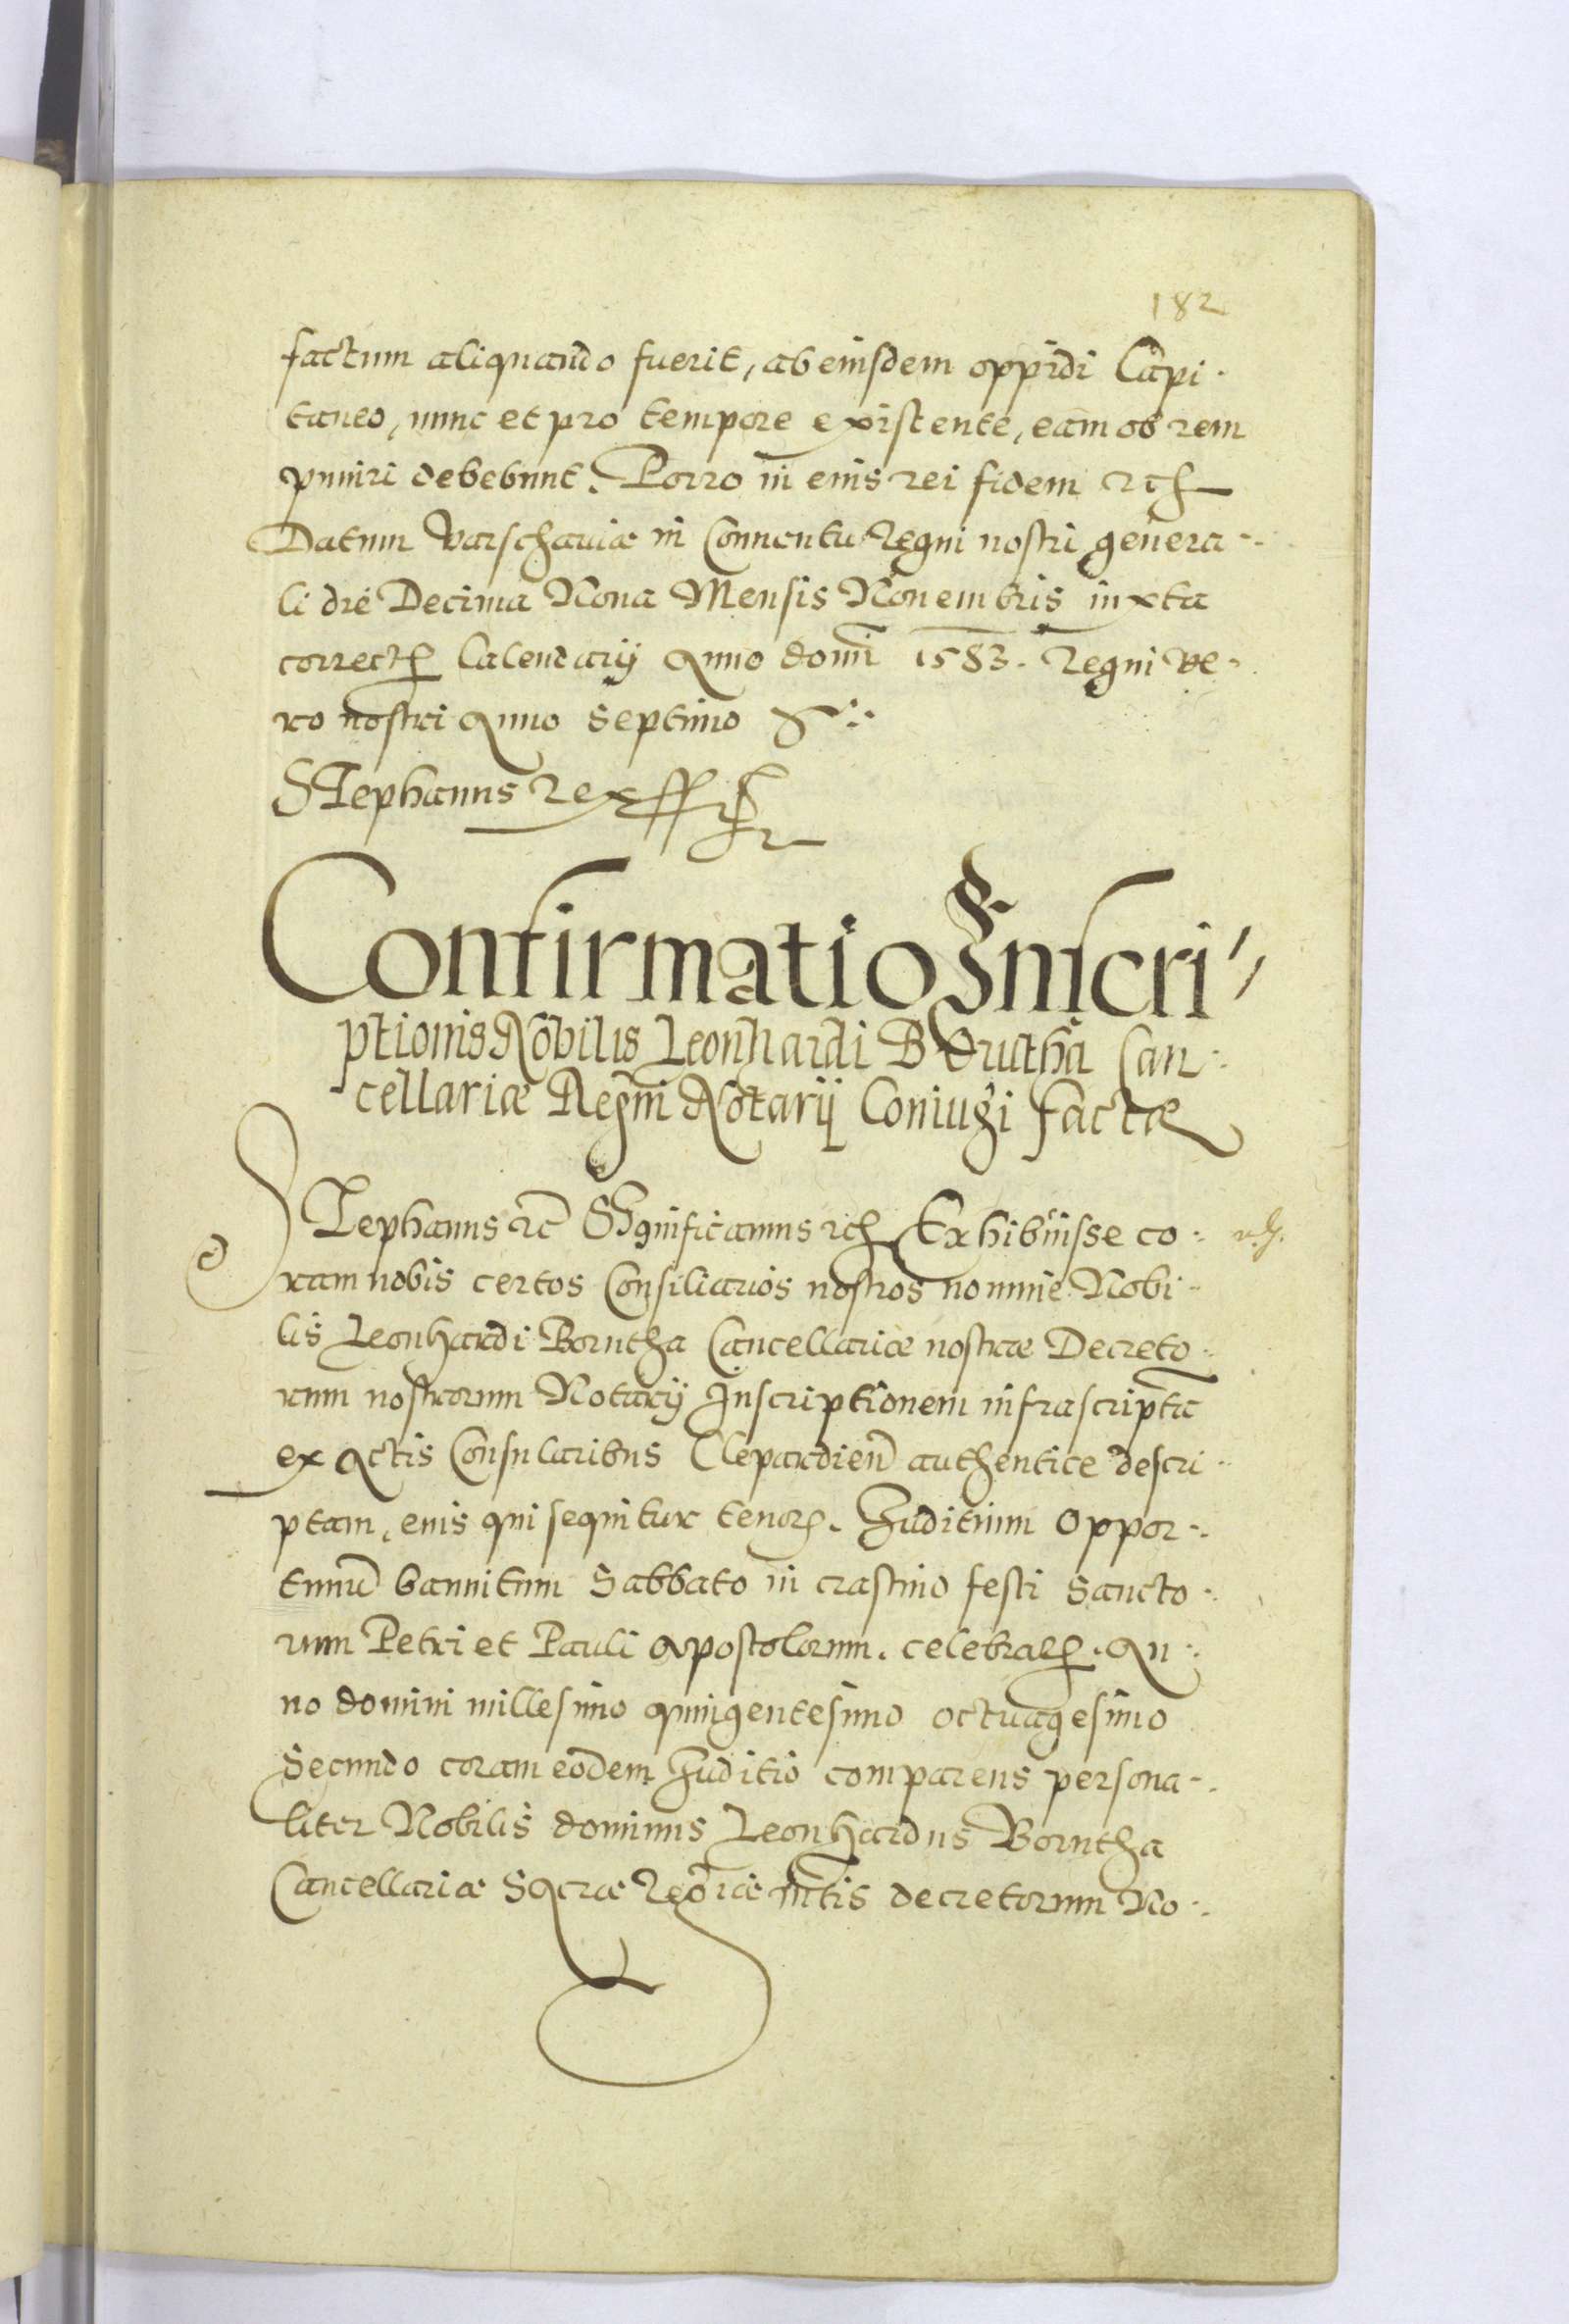 182
factum aliquando fuerit, ab eiusdem oppidi Capi-
taneo, nunc et pro tempore existente, eam ob rem
puniri debebunt. Porro in eius rei fidem etc
Datum Varschaviæ in Conventu Regni nostri genera-
li die Decima Nona Mensis Novembris iuxta
correct Calendarij Anno domi 1583. Regni ve-
ro nostri Anno Septimo
Stephanus Rex
Confirmatio Inscri-
ptionis Nobilis Leonhardi Borutha Can-
cellariæ Regni Notarij Coniugi factæ
Stephanus etc Significamus etc Exhibuisse co-
ram nobis certos Consiliarios nostros nomine Nobi-
lis Leonhardi Borutha Cancellariæ nostræ Decreto-
rum nostrorum Notarij Inscriptionem infrascriptā
ex Actis Consularibus Clepardieñ authentice descri-
ptam, eius qui sequitur tenor. Iuditium Oppor-
tunū bannitum Sabbato in crastino festi Sancto-
rum Petri et Pauli Apostolorum. celebrat. An-
no domini millesimo quingentesimo octuagesimo
Secundo coram eodem Iuditio comparens persona-
liter Nobilis dominus Leonhardus Borutha
Cancellariæ Sacræ Regiæ mtis decretorum No-